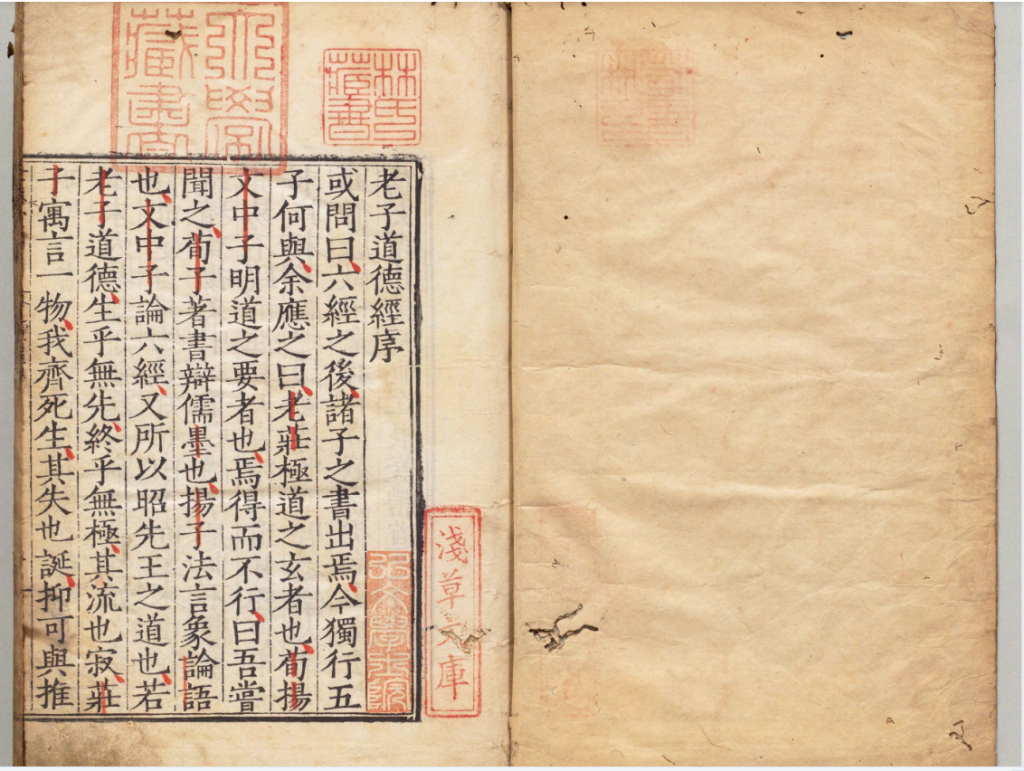 林氏藏書
淺草文庫
弘文學士院
老子道德經序
或問曰六經之後諸子之書出焉今獨行五
子何與余應之曰老莊極道之玄者也荀揚
文中子明道之要者也焉得而不行曰吾嘗
聞之荀子著書辯儒墨也揚子法言象論語
也文中子論六經又所以昭先王之道也若
老子道德生乎無先終乎無極其流也寂莊
子寓言一物我齊死生其失也誕抑可與推